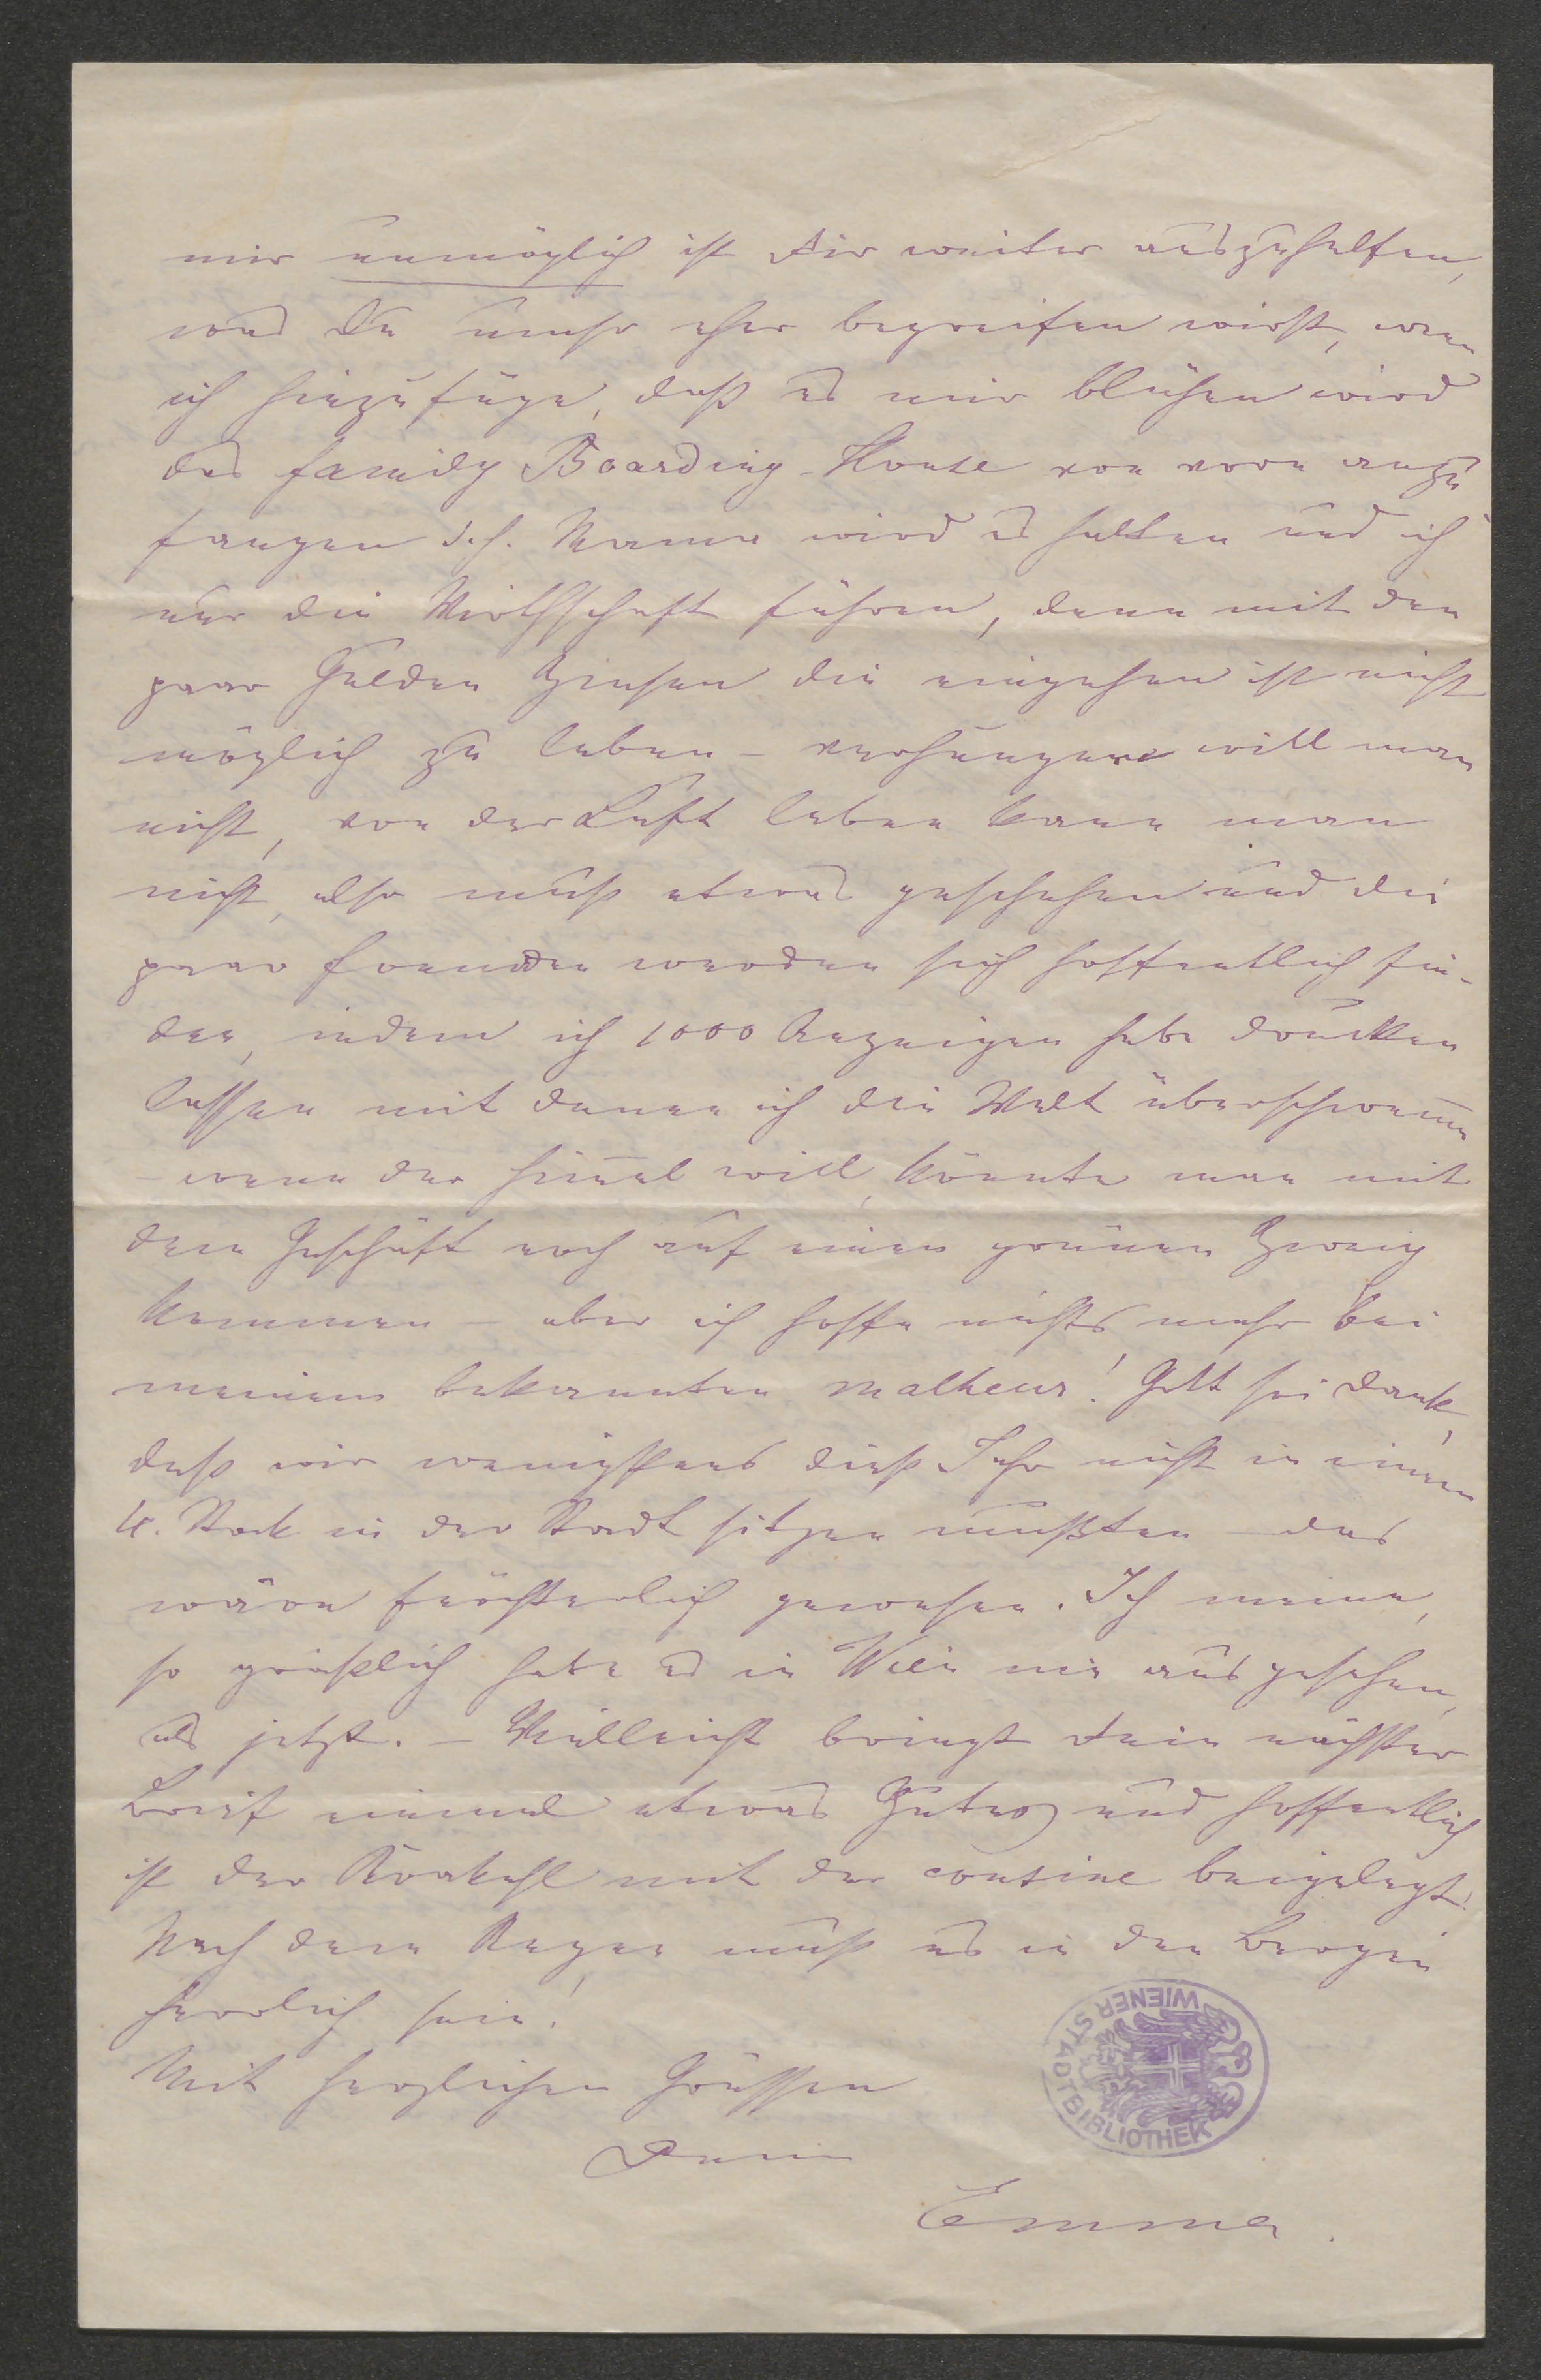 mir unmöglich ist Dir weiter auszuhelfen,
was Du umso eher begreifen wirst, wenn
ich hinzufüge, daß es mir blühen wird
das family Boarding-House von vorn anzu
fangen d.h. Mama wird es halten und ich
nur die Wirthschaft führen, denn mit den
paar Gulden Zinsen die eingehen ist nicht
möglich zu leben – verhungern will man
nicht, von der Luft leben kann man
nicht, also muß etwas geschehen und die
paar Fremden werden sich hoffentlich fin-
den, indem ich 1000 Anzeigen habe drucken
lassen mit denen ich die Welt überschwem̅e
– wenn der Him̅el will, könnte man mit
dem Geschäft noch auf einen grünen Zweig
kommen – aber ich hoffe nichts mehr bei
meinem bekannten malheur! Gott sei Dank,
daß wir wenigstens dieß Jahr nicht in einem
4. Stock in der Stadt sitzen mußten – das
wäre fürchterlich gewesen. Ich meine,
so gräßlich habe es in Wien nie ausgesehen,
als jetzt. – Vielleicht bringt Dein nächster
Brief einmal etwas Gutes und hoffentlich
ist der Krakehl mit der cousine beigelegt!
Nach dem Regen muß es in den Bergen
herrlich sein!
Mit herzlichen Grüssen
Deine
Emma.
WIENER STADTBIBLIOTHEK